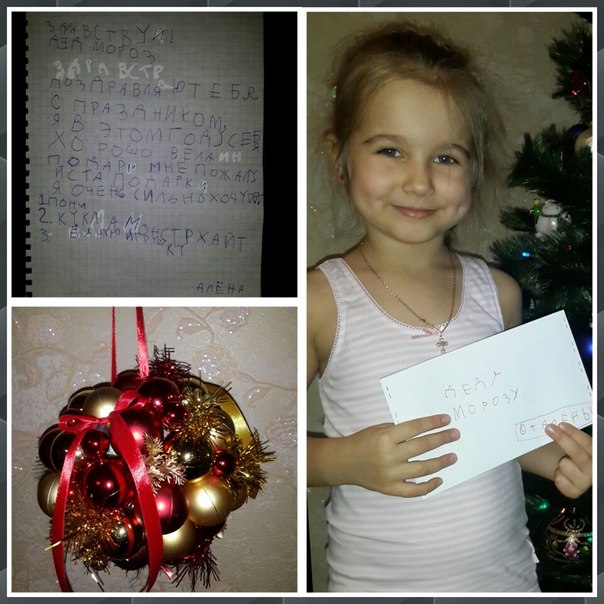 ЗДРАВСТВУЙ!
ДЕД МОРОЗ.
ЗДРАВСТВ
ПОЗДРАВЛЯЮ ТЕБЯ
С ПРАЗДНИКОМ,
Я В ЭТОМ ГОДУ СЕБЯ
ХОРОШО ВЕЛА
ПОДАРИ МНЕ ПОЖАЛУ
ЙСТА ПОДАРКИ
Я ОЧЕНЬ СИЛЬНЫ ХОЧУ
1. ПОНИ
2. КУКМА МОНСТР ХАЙТ
3. ЁЛОЧНУЮ ИГРУШ
КУ
АЛЁНА
ДЕДУ
МОРОЗУ
ОТ АЛЕНЫ